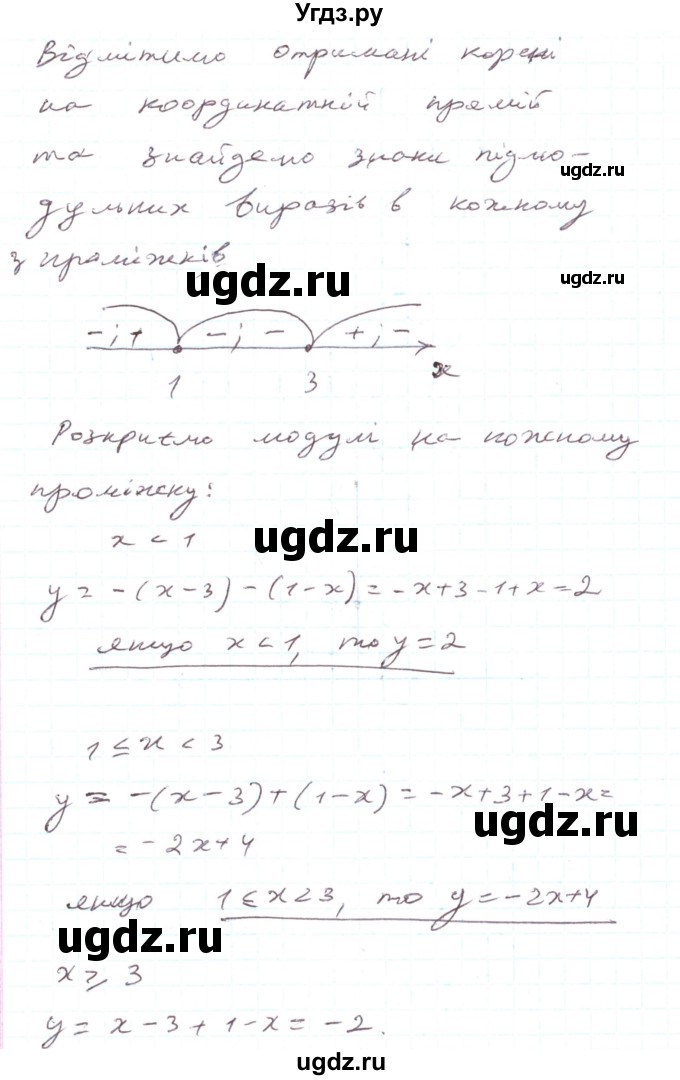 Угдз.ру
Відмітимо отримані корені
на координатній прямій
та знайдемо знаки підмо-
дульних виразів в кожному
з проміжків
-; + -; - +; -
1 3 x
Розкриємо модулі на кожному
проміжку:
x < 1
y = -(x-3) - (1-x) = -x+3-1+x = 2
якщо x < 1, то y = 2
1 ≤ x < 3
y = -(x-3) + (1-x) = -x+3+1-x =
= -2x+4
якщо 1 ≤ x < 3, то y = -2x+4
x ≥ 3
y = x-3+1-x = -2.
ugdz.ru
ugdz.ru
ugdz.ru
ugdz.ru
ugdz.ru
ugdz.ru
ugdz.ru
ugdz.ru